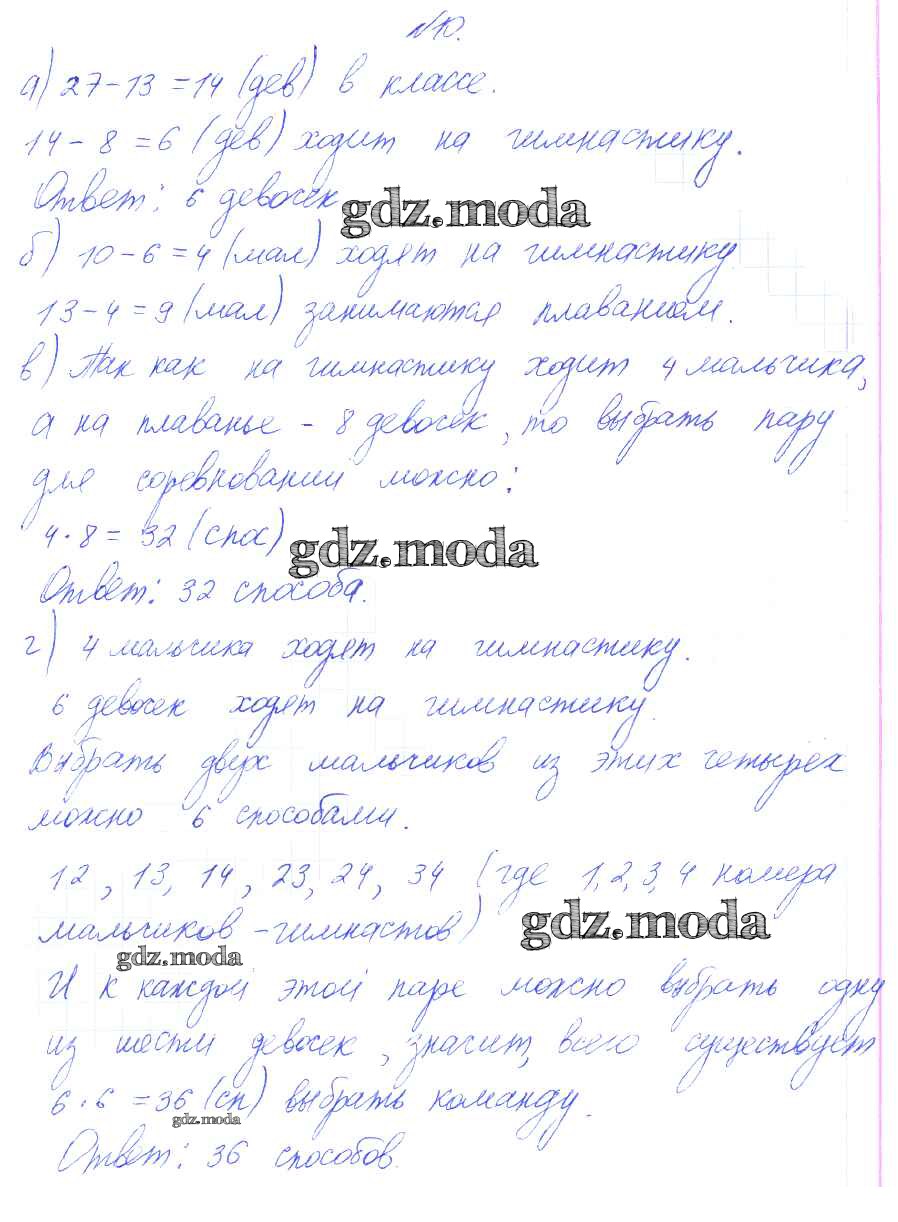 №10.
а) 27-13=14 (дев) в классе.
14-8=6 (дев) ходит на гимнастику.
Ответ: 6 девочек
gdz.moda
б) 10-6=4 (мал) ходят на гимнастику.
13-4=9 (мал) занимаются плаванием.
в) Так как на гимнастику ходит 4 мальчика,
а на плаванье - 8 девочек, то выбрать пару
для соревнований можно:
4·8= 32 (спос)
gdz.moda
Ответ: 32 способа.
г) 4 мальчика ходят на гимнастику.
6 девочек ходят на гимнастику.
Выбрать двух мальчиков из этих четырёх
можно 6 способами.
12, 13, 14, 23, 24, 34 (где 1, 2, 3, 4 номера
мальчиков - гимнастов)
gdz.moda
gdz.moda
И к каждой этой паре можно выбрать одну
из шести девочек, значит, всего существует
6·6=36 (сп) выбрать команду.
gdz.moda
Ответ: 36 способов.